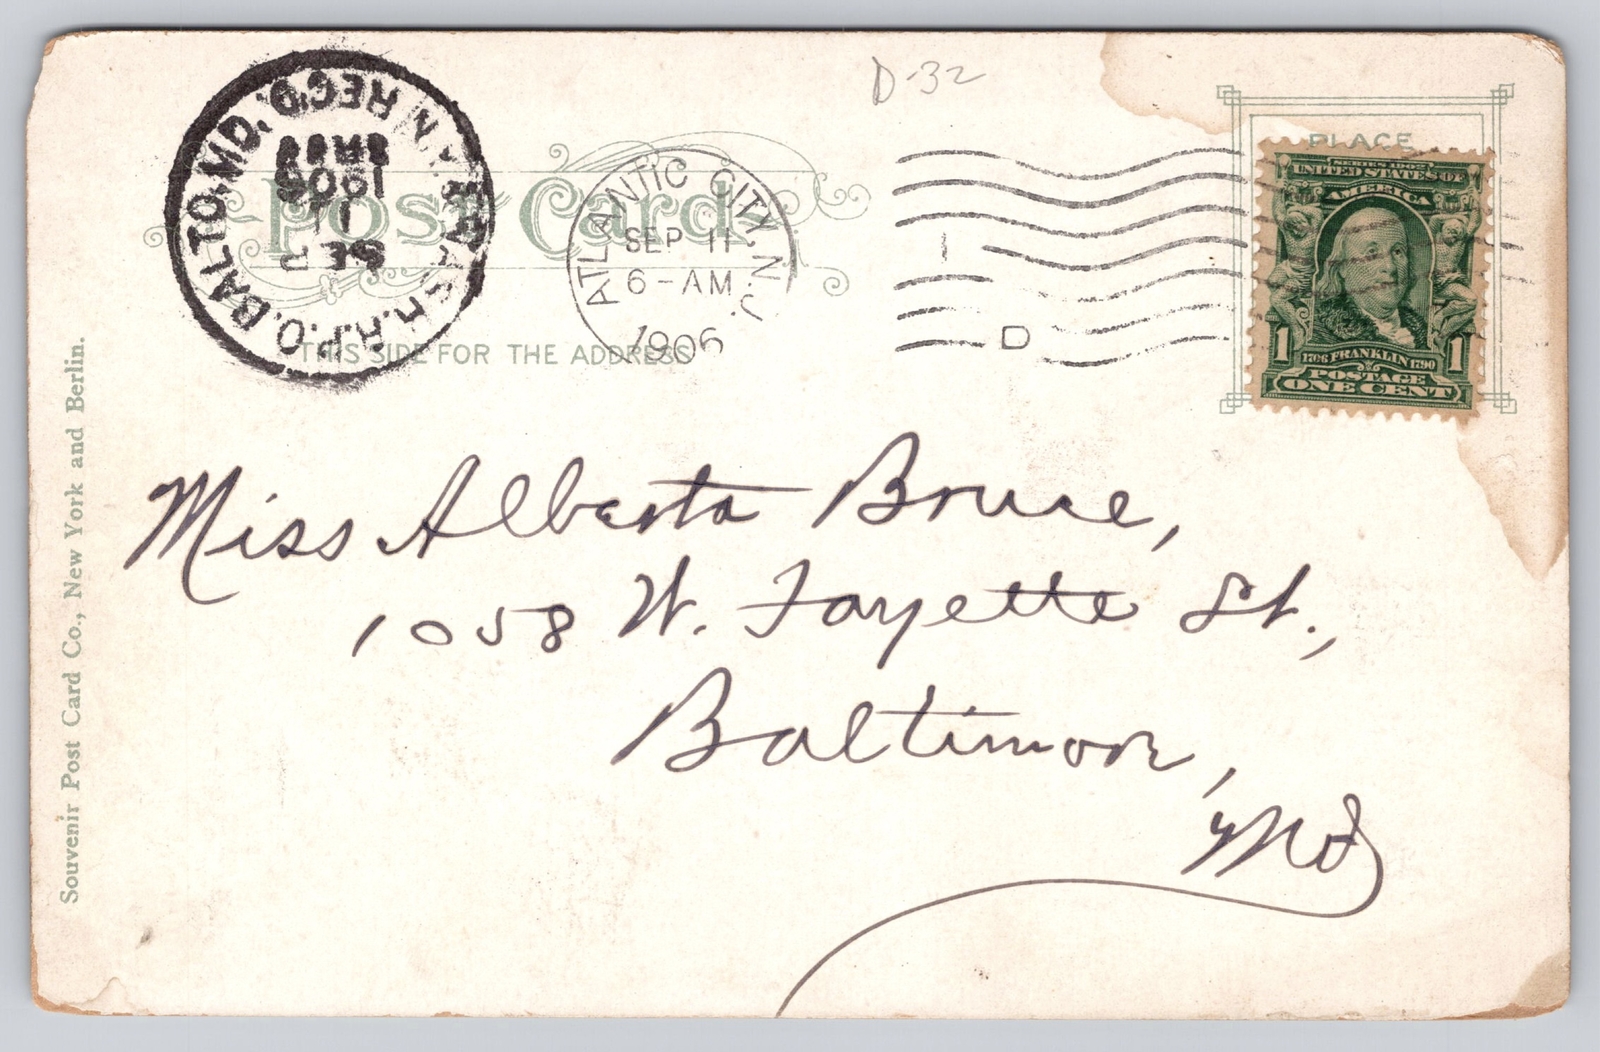 D-32
PLACE
Post Card
THIS SIDE FOR THE ADDRESS
ATLANTIC CITY N.J.
SEP 11
6-AM
1906
D
BALTO. MD. REC'D.
N.Y. & WASH. R.P.O.
SEP
11
UNITED STATES OF
AMERICA
1 1
1706 FRANKLIN 1790
POSTAGE
ONE CENT
Miss Alberta Bruce,
1058 W. Fayette St.,
Baltimore,
Md
Souvenir Post Card Co., New York and Berlin.